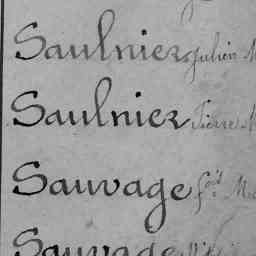 Saulnier Julien M
Saulnier Pierre M
Sauvage f.çois M
Sauvage